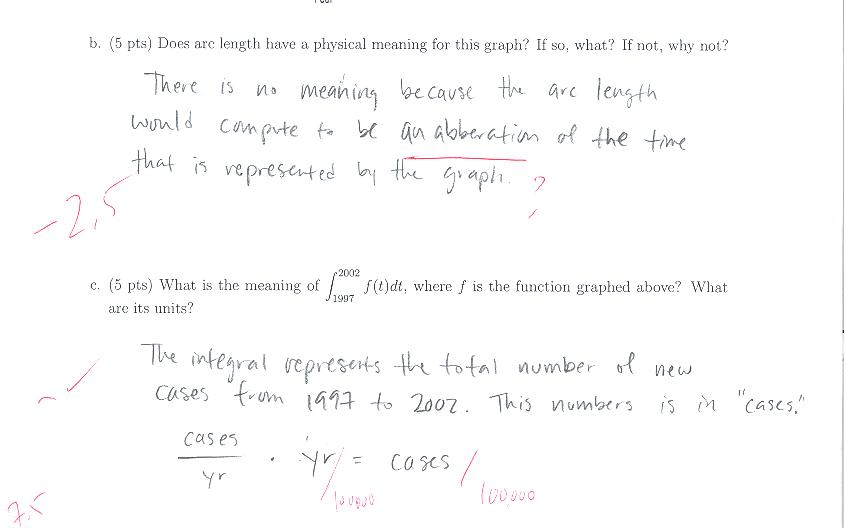 b. (5 pts) Does arc length have a physical meaning for this graph? If so, what? If not, why not?
There is no meaning because the arc length
would compute to be an abberation of the time
that is represented by the graph. ?
-2.5
c. (5 pts) What is the meaning of ∫_{1997}^{2002} f(t)dt, where f is the function graphed above? What
are its units?
The integral represents the total number of new
cases from 1997 to 2002. This numbers is in "cases."
cases/yr · yr/100000 = cases/100,000
7.5